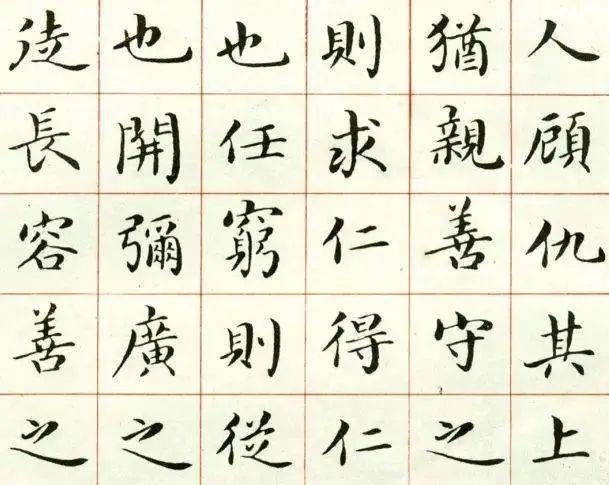 人顧仇其上
猶親善守之
則求仁得仁
也任窮則從
也開彌廣之
徒長容善之